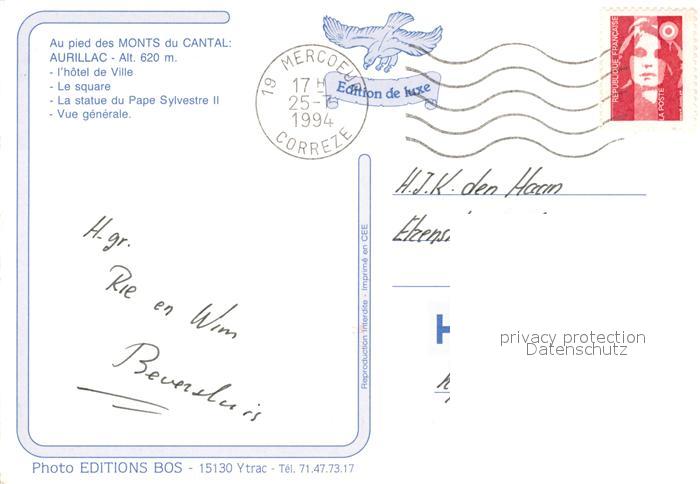 Au pied des MONTS du CANTAL:
AURILLAC - Alt. 620 m.
- l'hôtel de Ville
- Le square
- La statue du Pape Sylvestre II
- Vue générale.
19 MERCOEUR
17 H
25-7
1994
CORREZE
Edition de luxe
REPUBLIQUE FRANÇAISE
LA POSTE
H.J.K. den Haan
H. gr.
Rie en Wim
Beversluis
Reproduction Interdite - Imprimé en CEE
privacy protection
Datenschutz
Photo EDITIONS BOS - 15130 Ytrac - Tél. 71.47.73.17